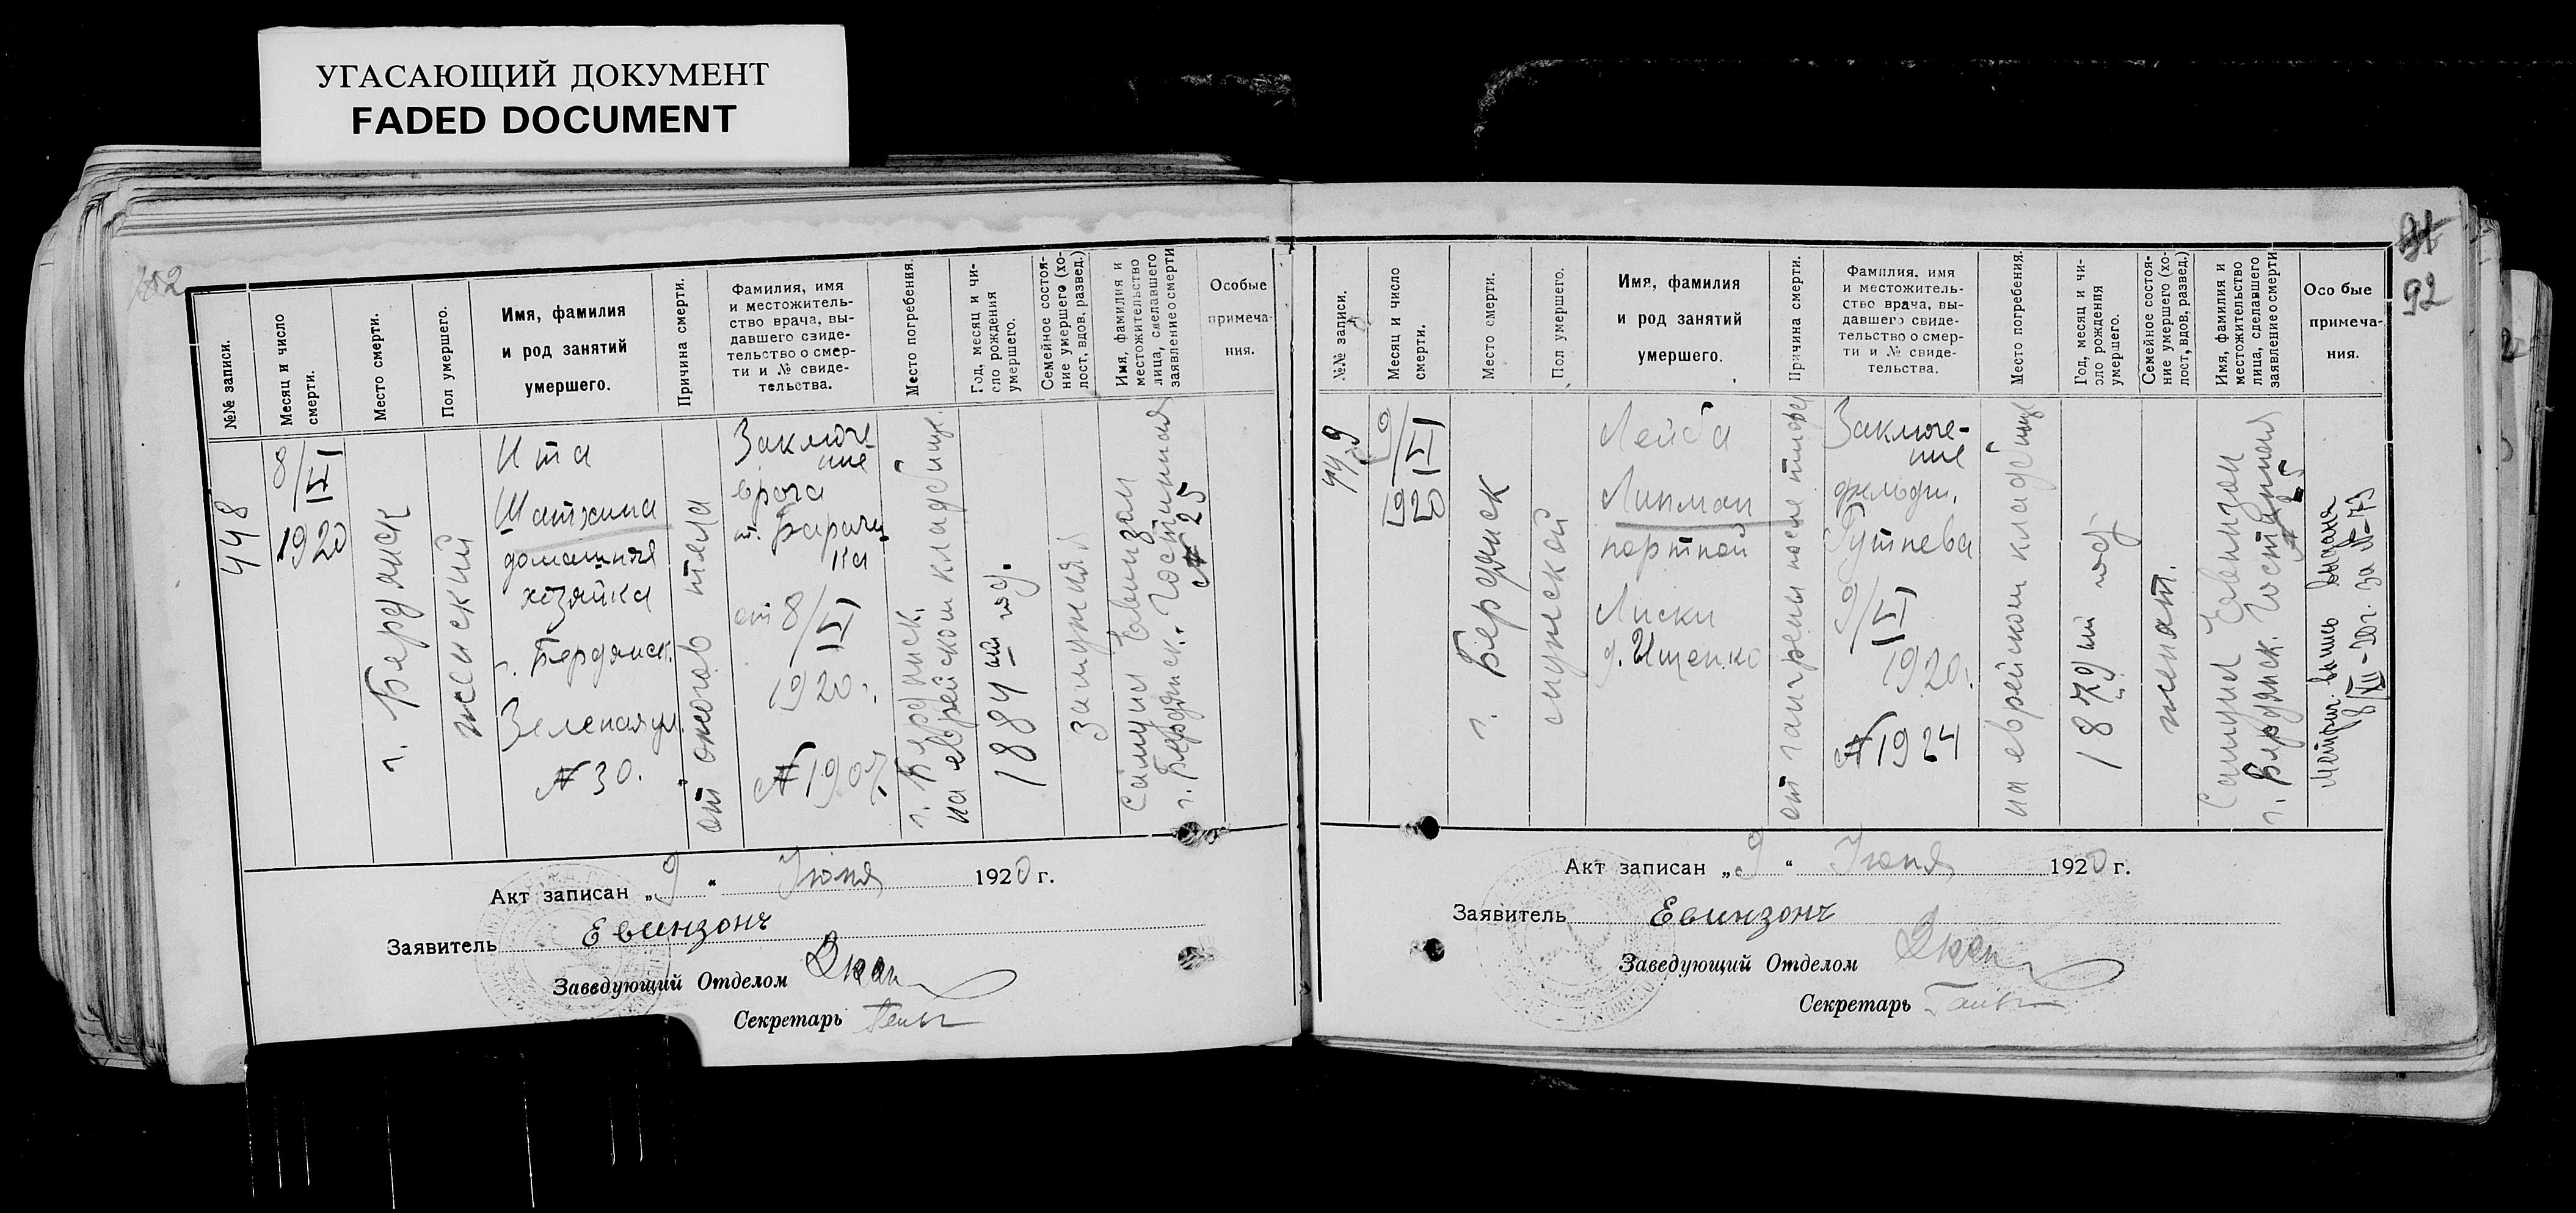 УГАСАЮЩИЙ ДОКУМЕНТ
FADED DOCUMENT
182
№№ записи.
Месяц и число
смерти.
Место смерти.
Пол умершего.
Имя, фамилия
и род занятий
умершего.
Причина смерти.
Фамилия, имя
и местожитель-
ство врача, вы-
давшего свиде-
тельство о смер-
ти и № свиде-
тельства.
Место погребения.
Год, месяц и чи-
сло рождения
умершего.
Семейное состоя-
ние умершего (хо-
лост, вдов, развед.)
Имя, фамилия и
местожительство
лица, сделавшего
заявление о смерти
Особые
примеча-
ния.
448
8/VI
1920
г. Бердянск
женский
Ита
Шатхина
домашняя
хозяйка
г. Бердянск.
Зеленая ул.
№ 30.
от ожогов тела
Заключе-
ние
врача
от 8/VI
1920 г.
№ 1907.
г. Бердянск.
на еврейском кладбище.
1884 ый год.
замужняя
Самуил Евинзон
г. Бердянск. Гостинная
№ 25
Акт записан „9“ Июня 1920 г.
Заявитель Евинзонъ
Заведующий Отделом
Секретарь
91
92
№№ записи.
Месяц и число
смерти.
Место смерти.
Пол умершего.
Имя, фамилия
и род занятий
умершего.
Причина смерти.
Фамилия, имя
и местожитель-
ство врача, вы-
давшего свиде-
тельство о смер-
ти и № свиде-
тельства.
Место погребения.
Год, месяц и чи-
сло рождения
умершего.
Семейное состоя-
ние умершего (хо-
лост, вдов, развед.)
Имя, фамилия и
местожительство
лица, сделавшего
заявление о смерти
Особые
примеча-
ния.
449
9/VI
1920
г. Бердянск
мужской
Лейба
Липман
портной
Лиски
д. Ищенко
от гангрены после тифа
Заключе-
ние
фельдш.
Гутнева
9/VI
1920 г.
№ 1924
на еврейском кладбище
1879 ый год
женат.
Самуил Евинзон
г. Бердянск. Гостинная
№ 25
Метрич. выпись выдана
8/XII-20 г. за №-173
Акт записан „9“ Июня 1920 г.
Заявитель Евинзонъ
Заведующий Отделом
Секретарь